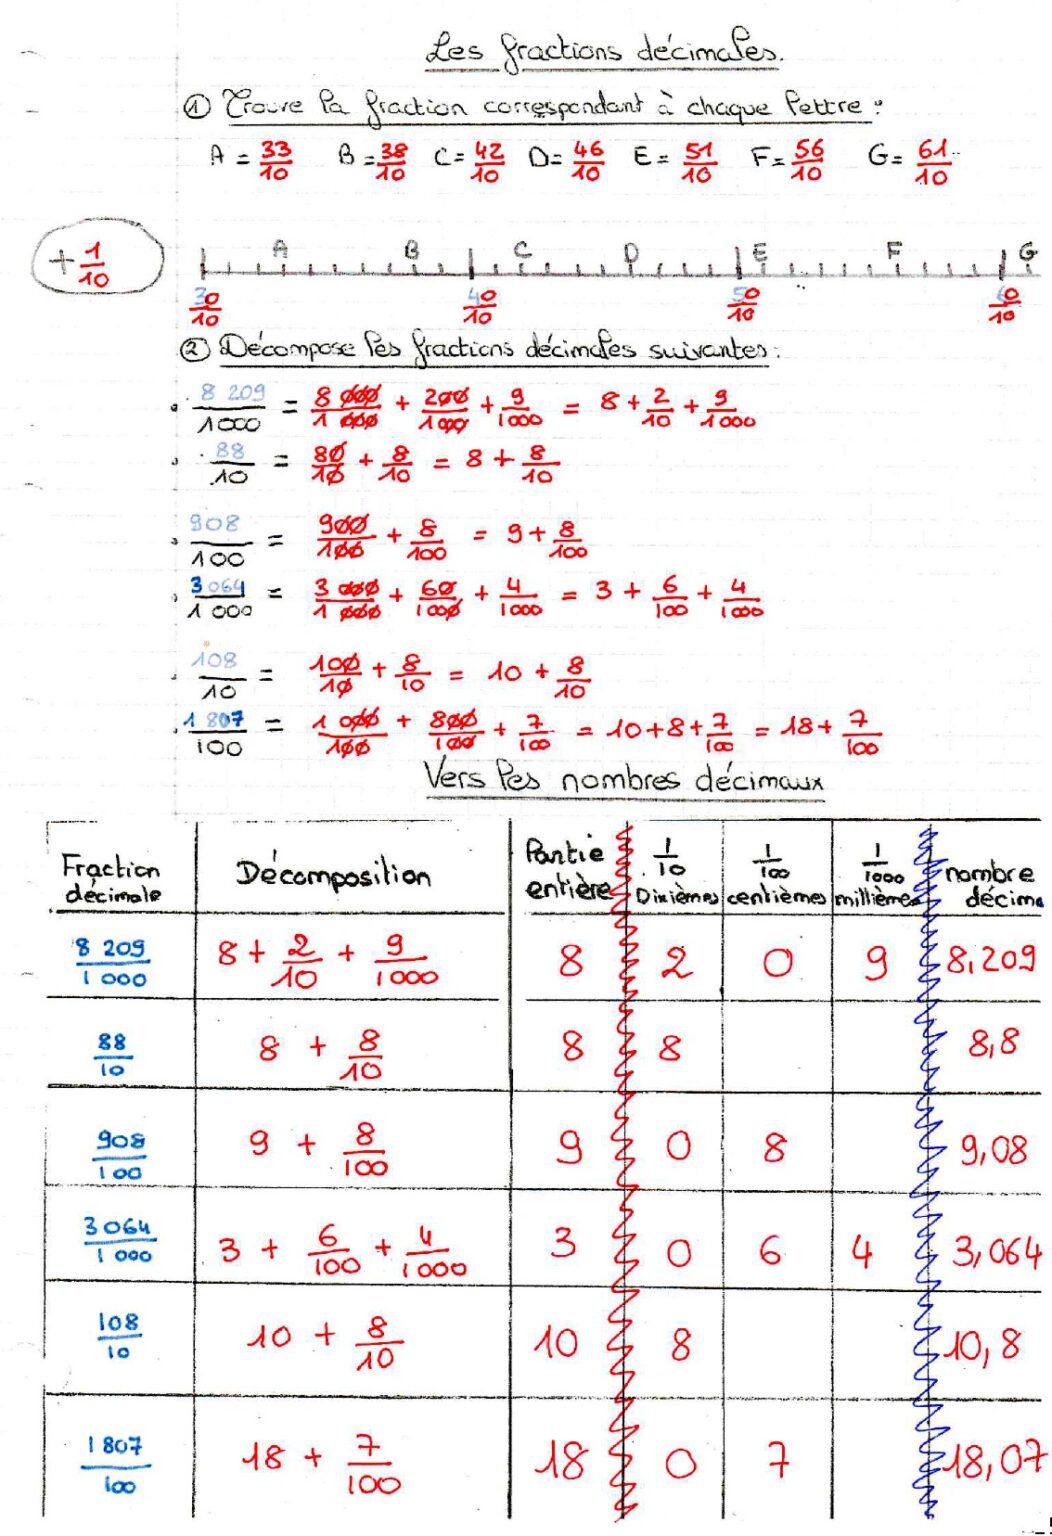 Les fractions décimales.
① Trouve la fraction correspondant à chaque lettre :
A = 33/10 B = 38/10 C = 42/10 D = 46/10 E = 51/10 F = 56/10 G = 61/10
+ 1/10
A B C D E F G
30/10 40/10 50/10 60/10
② Décompose les fractions décimales suivantes :
. 8 209/1000 = 8 000/1 000 + 200/1000 + 9/1000 = 8 + 2/10 + 9/1000
. 88/10 = 80/10 + 8/10 = 8 + 8/10
. 908/100 = 900/100 + 8/100 = 9 + 8/100
. 3 064/1 000 = 3 000/1 000 + 60/1000 + 4/1000 = 3 + 6/100 + 4/1000
. 108/10 = 100/10 + 8/10 = 10 + 8/10
. 1 807/100 = 1 000/100 + 800/100 + 7/100 = 10+8+7/100 = 18+7/100
Vers les nombres décimaux
Fraction décimale Décomposition Partie entière 1/10 Dixièmes 1/100 centièmes 1/1000 millièmes nombre décima
8 209/1 000 8 + 2/10 + 9/1000 8 2 0 9 8,209
88/10 8 + 8/10 8 8 8,8
908/100 9 + 8/100 9 0 8 9,08
3 064/1 000 3 + 6/100 + 4/1000 3 0 6 4 3,064
108/10 10 + 8/10 10 8 10,8
1 807/100 18 + 7/100 18 0 7 18,07